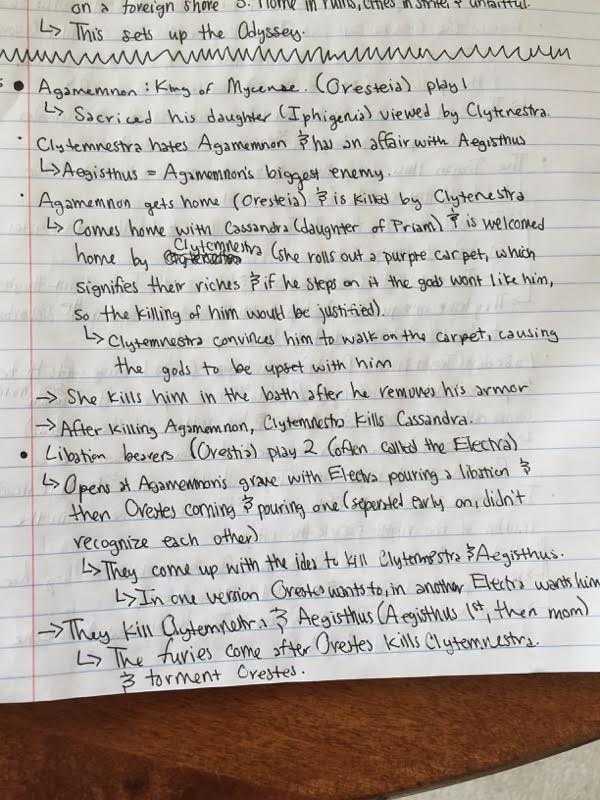 on a foreign shore 3. Home in ruins, cities in strife, & unfaithful.
↳ This sets up the Odyssey.
• Agamemnon: King of Mycenae. (Oresteia) play 1
↳ Sacriced his daughter (Iphigenia) viewed by Clytenestra.
• Clytemnestra hates Agamemnon & has an affair with Aegisthus
↳ Aegisthus = Agamemnon's biggest enemy.
• Agamemnon gets home (Oresteia) & is killed by Clytenestra
↳ Comes home with Cassandra (daughter of Priam) & is welcomed
home by Clytemnestra (she rolls out a purple carpet, which
signifies their riches & if he steps on it the gods wont like him,
so the killing of him would be justified).
↳ Clytemnestra convinces him to walk on the carpet, causing
the gods to be upset with him
→ She kills him in the bath after he removes his armor
→ After killing Agamemnon, Clytemnestra kills Cassandra.
• Libation bearers (Orestia) play 2 (often called the Electra)
↳ Opens at Agamemnon's grave with Electra pouring a libation &
then Orestes coming & pouring one (seperated early on, didn't
recognize each other)
↳ They come up with the idea to kill Clytemnestra & Aegisthus.
↳ In one version Orestes wants to, in another Electra wants him
→ They kill Clytemnestra & Aegisthus (Aegisthus 1st, then mom)
↳ The furies come after Orestes kills Clytemnestra.
& torment Orestes.